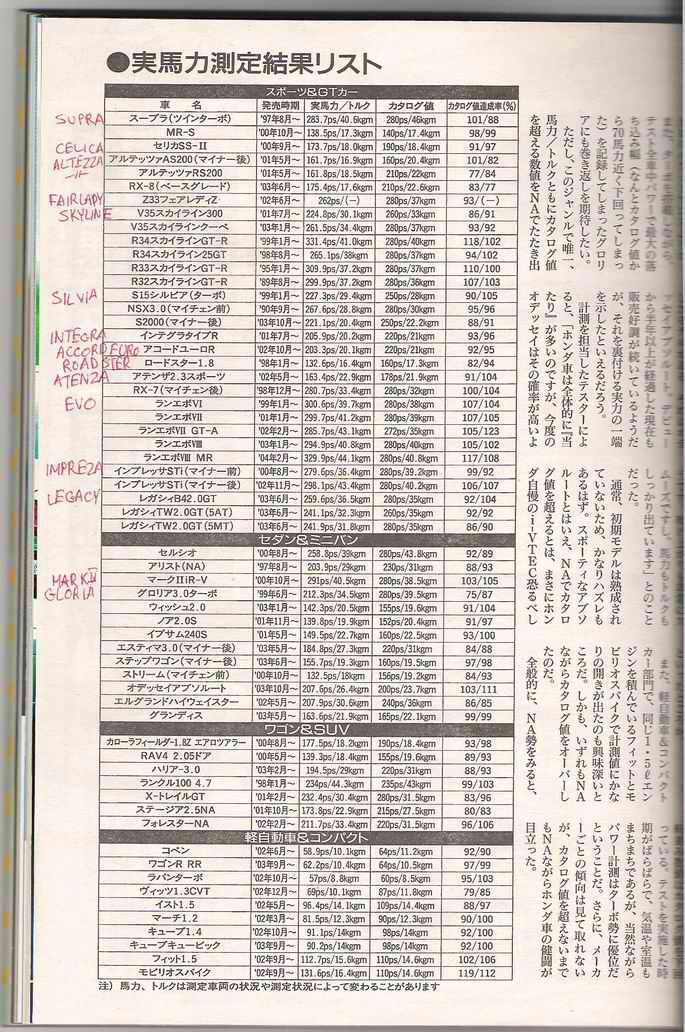 ●実馬力測定結果リスト
スポーツ&GTカー
車 名 発売時期 実馬力/トルク カタログ値 カタログ値達成率(%)
SUPRA スープラ(ツインターボ) '97年8月〜 283.7ps/40.6kgm 280ps/46kgm 101/88
MR-S '00年10月〜 138.5ps/17.3kgm 140ps/17.4kgm 98/99
CELICA セリカSS-Ⅱ '00年9月〜 173.7ps/18.0kgm 190ps/18.4kgm 91/97
ALTEZZA アルテッツァAS200(マイナー後) '01年5月〜 161.7ps/16.9kgm 160ps/20.4kgm 101/82
アルテッツァRS200 '01年5月〜 161.8ps/18.5kgm 210ps/22kgm 77/84
RX-8(ベースグレード) '03年6月〜 175.4ps/17.6kgm 210ps/22.6kgm 83/77
FAIRLADY Z33フェアレディZ '02年6月〜 262ps/(ー) 280ps/37kgm 93/(ー)
SKYLINE V35スカイライン300 '01年7月〜 224.8ps/30.1kgm 260ps/33kgm 86/91
V35スカイラインクーペ '03年1月〜 261.5ps/34.4kgm 280ps/37kgm 93/92
R34スカイラインGT-R '99年1月〜 331.4ps/41.0kgm 280ps/40kgm 118/102
R34スカイライン25GT '98年8月〜 265.1ps/38kgm 280ps/37kgm 94/102
R33スカイラインGT-R '95年1月〜 309.9ps/37.2kgm 280ps/37kgm 110/100
R32スカイラインGT-R '89年8月〜 299.2ps/37.2kgm 280ps/36kgm 107/103
SILVIA S15シルビア(ターボ) '99年1月〜 227.3ps/29.4kgm 250ps/28kgm 90/105
NSX3.0(マイチェン前) '90年9月〜 267.6ps/28.8kgm 280ps/30kgm 95/96
S2000(マイナー後) '03年10月〜 221.1ps/20.4kgm 250ps/22.2kgm 88/91
INTEGRA インテグラタイプR '01年7月〜 205.9ps/20.2kgm 220ps/21kgm 93/96
ACCORD EURO アコードユーロR '02年10月〜 203.3ps/20.1kgm 220ps/21kgm 92/95
ROADSTER ロードスター1.8 '98年1月〜 132.6ps/16.4kgm 160ps/17.3kgm 82/94
ATENZA アテンザ2.3スポーツ '02年5月〜 163.4ps/22.9kgm 178ps/21.9kgm 91/104
RX-7(マイチェン後) '98年12月〜 280.7ps/33.4kgm 280ps/32kgm 100/104
EVO ランエボⅥ '99年1月〜 300.6ps/39.7kgm 280ps/38kgm 107/104
ランエボⅦ '01年1月〜 299.7ps/41.2kgm 280ps/39kgm 107/105
ランエボⅦ GT-A '02年2月〜 285.7ps/43.1kgm 272ps/35kgm 105/123
ランエボⅧ '03年1月〜 294.9ps/40.8kgm 280ps/40kgm 105/102
ランエボⅧ MR '04年2月〜 329.9ps/44.1kgm 280ps/40.8kgm 117/108
IMPREZA インプレッサSTi(マイナー前) '00年8月〜 279.6ps/36.4kgm 280ps/39.2kgm 99/92
インプレッサSTi(マイナー後) '02年11月〜 298.1ps/43.4kgm 280ps/40.2kgm 106/107
LEGACY レガシィB42.0GT '03年6月〜 259.6ps/36.5kgm 280ps/35kgm 92/104
レガシィTW2.0GT(5AT) '03年6月〜 241.1ps/32.3kgm 260ps/35kgm 92/92
レガシィTW2.0GT(5MT) '03年6月〜 241.9ps/31.8kgm 280ps/35kgm 86/90
セダン&ミニバン
セルシオ '00年8月〜 258.8ps/39kgm 280ps/43.8kgm 92/89
アリスト(NA) '97年8月〜 203.9ps/29kgm 230ps/31kgm 88/93
MARKⅡ マークⅡiR-V '00年10月〜 291ps/40.5kgm 280ps/38.5kgm 103/105
GLORIA グロリア3.0ターボ '99年6月〜 212.3ps/34.5kgm 280ps/39.5kgm 75/87
ウィッシュ2.0 '03年1月〜 142.3ps/20.5kgm 155ps/19.6kgm 91/104
ノア2.0S '01年11月〜 139.8ps/19.9kgm 152ps/20.4kgm 91/97
イプサム240S '01年5月〜 149.5ps/22.7kgm 160ps/22.5kgm 93/100
エスティマ3.0(マイナー後) '03年5月〜 184.8ps/27.3kgm 220ps/31kgm 84/88
ステップワゴン(マイナー後) '03年6月〜 155.7ps/19.3kgm 160ps/19.5kgm 97/98
ストリーム(マイチェン前) '00年10月〜 132.5ps/18kgm 156ps/19.2kgm 84/93
オデッセイアブソルート '03年10月〜 207.6ps/26.4kgm 200ps/23.7kgm 103/111
エルグランドハイウェイスター '02年5月〜 207.9ps/30.6kgm 240ps/36kgm 86/85
グランディス '03年5月〜 163.6ps/21.9kgm 165ps/22.1kgm 99/99
ワゴン&SUV
カローラフィールダー1.8Z エアロツアラー '00年8月〜 177.5ps/18.2kgm 190ps/18.4kgm 93/98
RAV4 2.05ドア '00年5月〜 139.3ps/18.4kgm 155ps/19.6kgm 89/93
ハリアー3.0 '03年2月〜 194.5ps/29kgm 220ps/31kgm 88/93
ランクル100 4.7 '98年1月〜 234ps/44.3kgm 235ps/43kgm 99/103
X-トレイルGT '01年2月〜 232.4ps/30.4kgm 280ps/31.5kgm 83/96
ステージア2.5NA '01年10月〜 173.8ps/22.9kgm 215ps/27.5kgm 80/83
フォレスターNA '02年2月〜 211.7ps/33.4kgm 220ps/31.5kgm 96/106
軽自動車&コンパクト
コペン '02年6月〜 58.9ps/10.1kgm 64ps/11.2kgm 92/90
ワゴンR RR '03年9月〜 62.2ps/10.4kgm 64ps/10.5kgm 97/99
ラパンターボ '02年10月〜 57ps/8.8kgm 60ps/8.5kgm 95/103
ヴィッツ1.3CVT '02年12月〜 69ps/10.1kgm 87ps/11.8kgm 79/85
イスト1.5 '02年5月〜 96.4ps/14.1kgm 109ps/14.4kgm 88/97
マーチ1.2 '02年3月〜 81.5ps/12.3kgm 90ps/12.3kgm 90/100
キューブ1.4 '02年10月〜 91.1ps/14kgm 98ps/14kgm 92/100
キューブキュービック '03年9月〜 90.2ps/14kgm 98ps/14kgm 92/100
フィット1.5 '02年9月〜 112.7ps/15.6kgm 110ps/14.6kgm 102/106
モビリオスパイク '02年9月〜 131.6ps/16.4kgm 110ps/14.6kgm 119/112
注)馬力、トルクは測定車両の状況や測定状況によって変わることがあります
テスト全車中パワーで最大の落
ち込み幅(なんとカタログ値か
ら70馬力近く下回ってしまっ
た)を記録してしまったグロリ
アにも巻き返しを期待したい。
ただし、このジャンルで唯一、
馬力/トルクともにカタログ値
を超える数値をNAでたたき出
ッセイアブソルート。デビュー
から半年以上が経過した現在も
販売好調が続いているようだ
が、それを裏付ける実力の一端
を示したといえるだろう。
計測を担当したテスターによ
ると、「ホンダ車は全体的に『当
たり』が多いのですが、今度の
オデッセイはその確率が高いよ
ムーズですし、馬力もトルクも
しっかり出ています」とのこと
だった。
通常、初期モデルは熟成され
ていないため、かなりハズレも
あるはず。スポーティなアブソ
ルートとはいえ、NAでカタロ
グ値を超えるとは、まさにホン
ダ自慢のi-VTEC恐るべし
また、軽自動車&コンパクト
カー部門で、同じ1・5ℓエン
ジンを積んでいるフィットとモ
ビリオスパイクで計測値にかな
りの開きが出たのも興味深いと
ころだ。しかも、いずれもNA
ながらカタログ値をオーバーし
たのだ。
全般的に、NA勢をみると、
っている。テストを実施した時
期がばらばらで、気温や室温も
まちまちであるが、当然ながら
パワー計測はターボ勢に優位だ
ということだ。さらに、メーカ
ーごとの傾向は見て取れない
が、カタログ値を超えないまで
もNAながらホンダ車の健闘が
目立った。